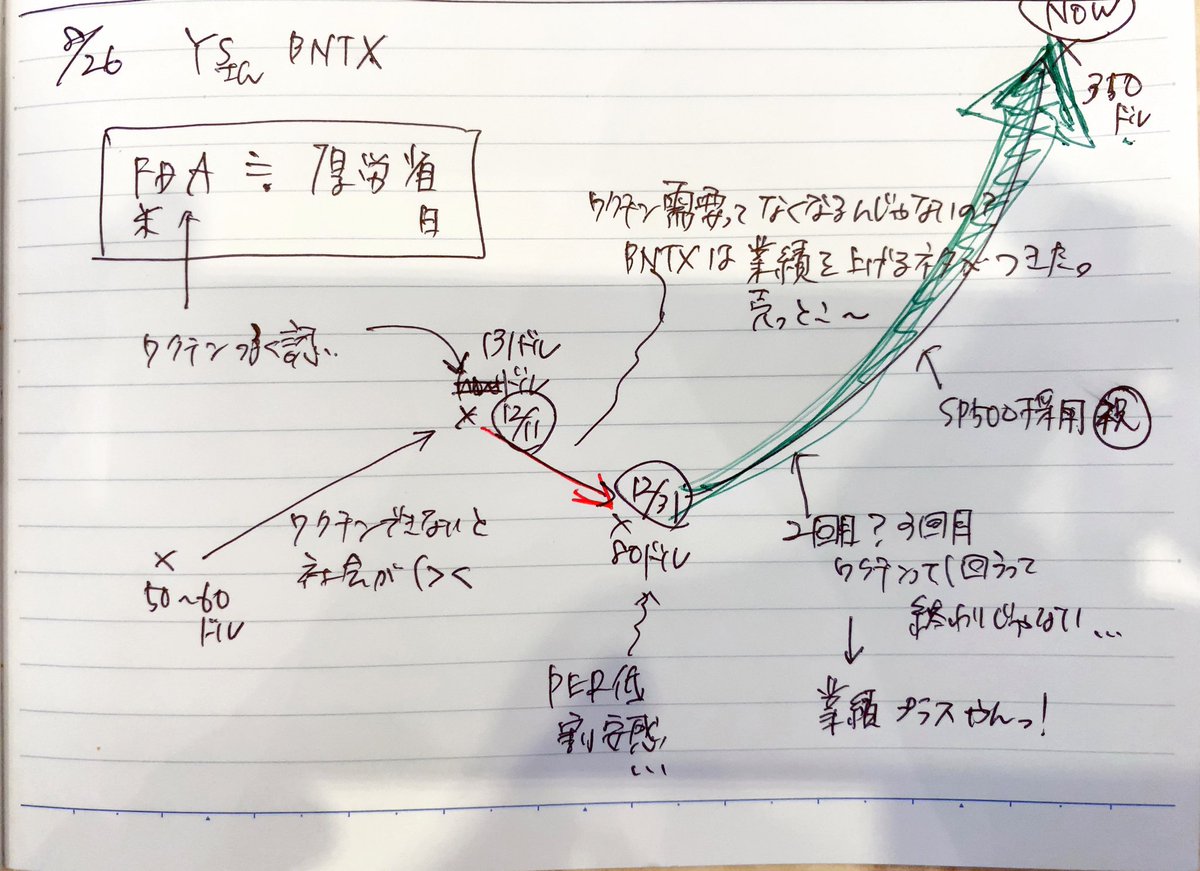 8/26 BNTX
NOW
350
ドル
FDA ≒ 厚労省
米 日
ワクチン需要ってなくなるんじゃないの?
BNTXは業績を上げるネタがつきた。
売っとこ〜
ワクチン
131ドル
12/11
SP500採用 祝
12/31
80ドル
ワクチンできないと
社会が
50〜60
ドル
2回目?3回目
ワクチンって1回うって
終わりじゃない...
業績プラスやんっ!
PER低
割安感
...